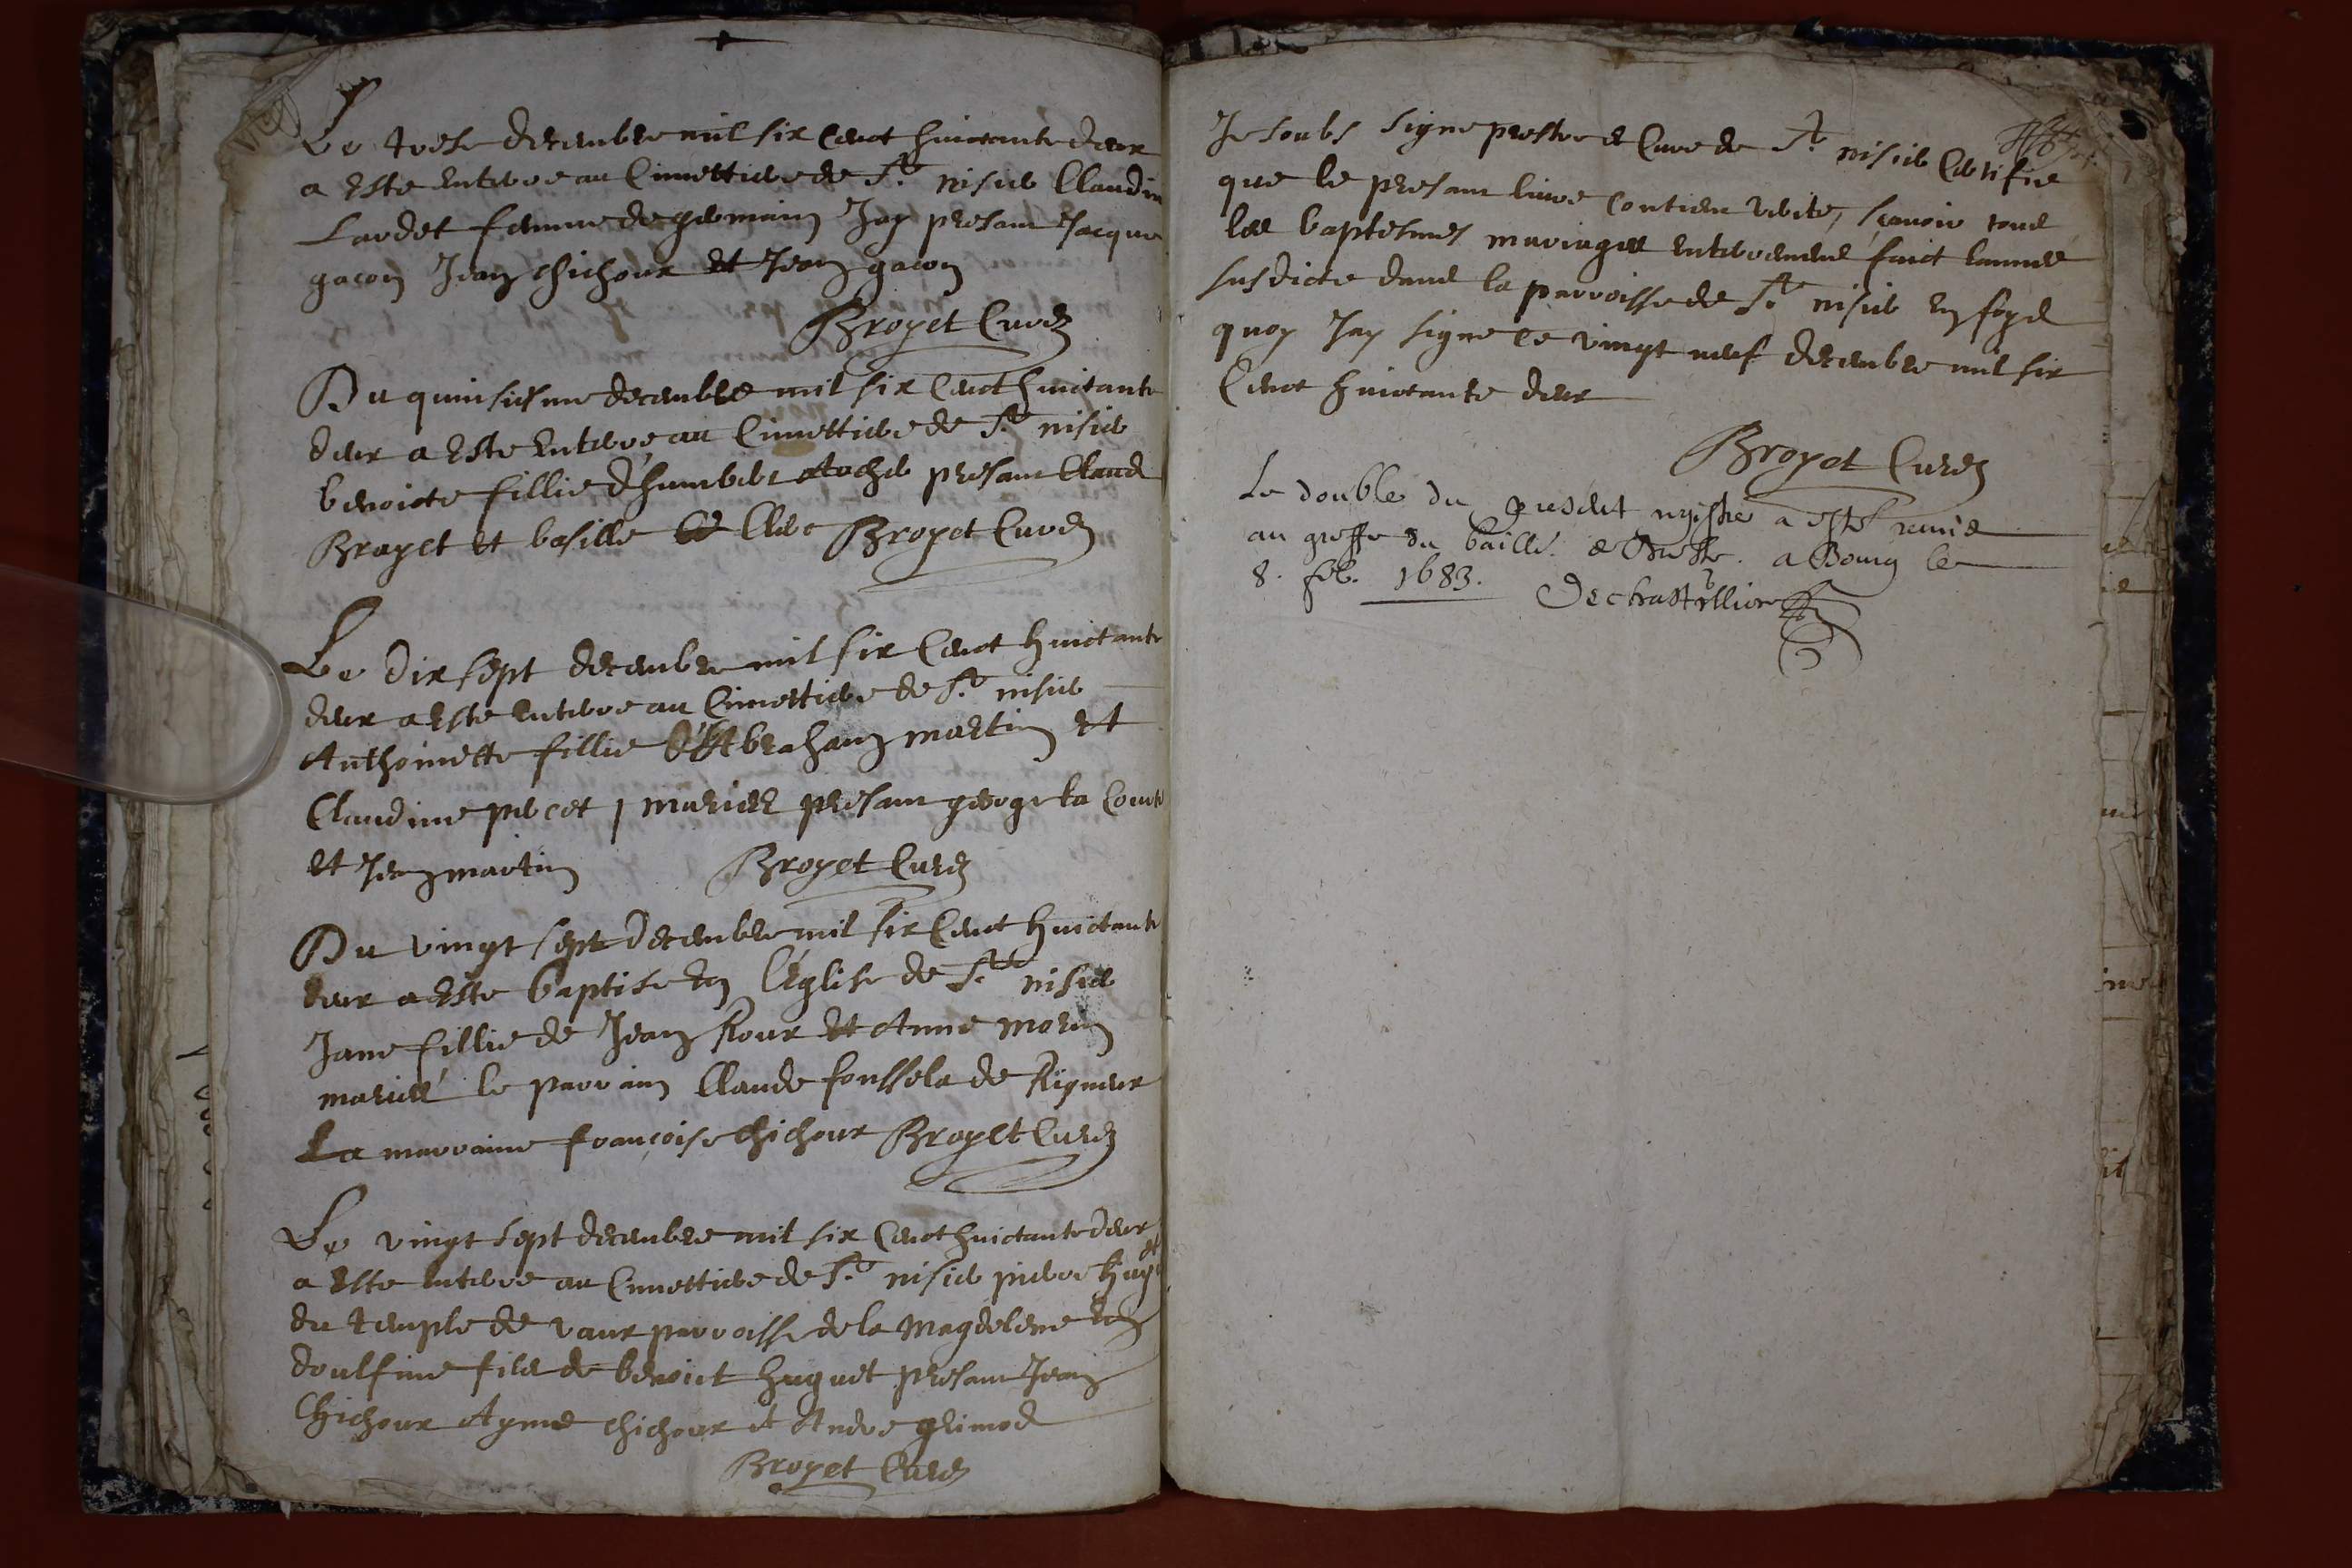 Le trese decembre mil six cent huictante deux
a esté enterre au Cimettiere de St nisier Claudin
Lardet femme de germain Jay presant Jacque
gacon Jean chichoux et Jean gacon
Broyet Curé
Du quinsiesme decembre mil six cent huictante
deux a esté enterre au Cimettiere de St nisier
benoicte fillie d'humbert presant Claude
Broyet et basille Clerc Broyet Curé
Le dix sept decembre mil six cent huictante
deux a esté enterre au Cimettiere de St nisier
Anthoinette fillie d'Abraham martin et
Claudine percet mariez presant george la Coute
et Jean martin Broyet Curé
Du vingt sept decembre mil six cent huictante
deux a esté baptise en l'Eglise de St nisier
Jane fillie de Jean Roux et Anne morin
mariez le parrain Claude foussela de Rigneux
La marraine françoise chichoux Broyet Curé
Le vingt sept decembre mil six cent huictante deux
a esté enterre au Cimettiere de St nisier pierre huguet
du temple de vaux parroisse de la Magdelene en
doulfine filz de benoict huguet presant Jean
Chichoux Ayme chichoux et Andre grimod
Broyet Curé
Je soubs signe prestre et Cure de St nisier Certifie
que le presant livre contient verite, sçavoir tous
les baptesmes mariages enterremens faict lannee
susdicte dans la parroisse de St nisier en foy de
quoy Jay signe ce vingt neuf decembre mil six
Cent huictante deux
Broyet Curé
Le double du presdnt registre a esté remis
au greffe du bailli. de Bresse. a Bourg le
8. feb. 1683. Dechastillion